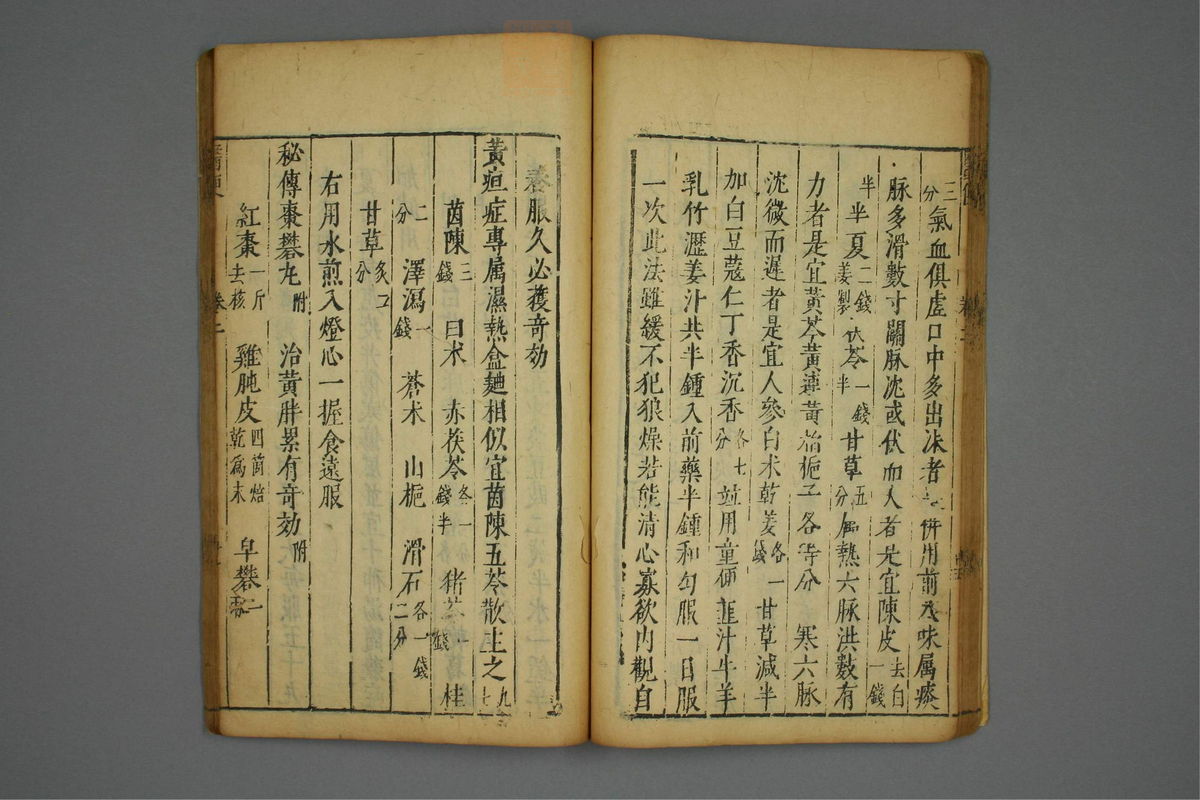 三分氣血俱虛口中多出沫者併用前八味属痰
脉多滑數寸關脉沈或伏而大者是宜陳皮去白一錢
半半夏二錢姜製伏苓一錢半甘草五分属熱六脉洪數有
力者是宜黃芩黃連黃栢梔子各等分寒六脉
沈微而遲者是宜人參白朮乾姜各一錢甘草減半
加白豆蔻仁丁香沉香各七分竝用童便韮汁牛羊
乳竹瀝姜汁共半鍾入前藥半鍾和勻服一日服
一次此法雖緩不犯狼燥若能清心寡欲内觀自
養服久必獲奇効
黃疸症專属濕熱盒麯相似宜茵陳五苓散主之九七
茵陳三錢白朮赤茯苓各一錢半猪苓一錢桂
二分澤瀉一錢蒼朮山梔滑石各一錢二分
甘草炙二分
右用水煎入燈心一握食遠服
秘傳棗礬丸附治黃胖累有奇効附
紅棗一斤去核雞肫皮四箇焙乾爲末皁礬二
卷二